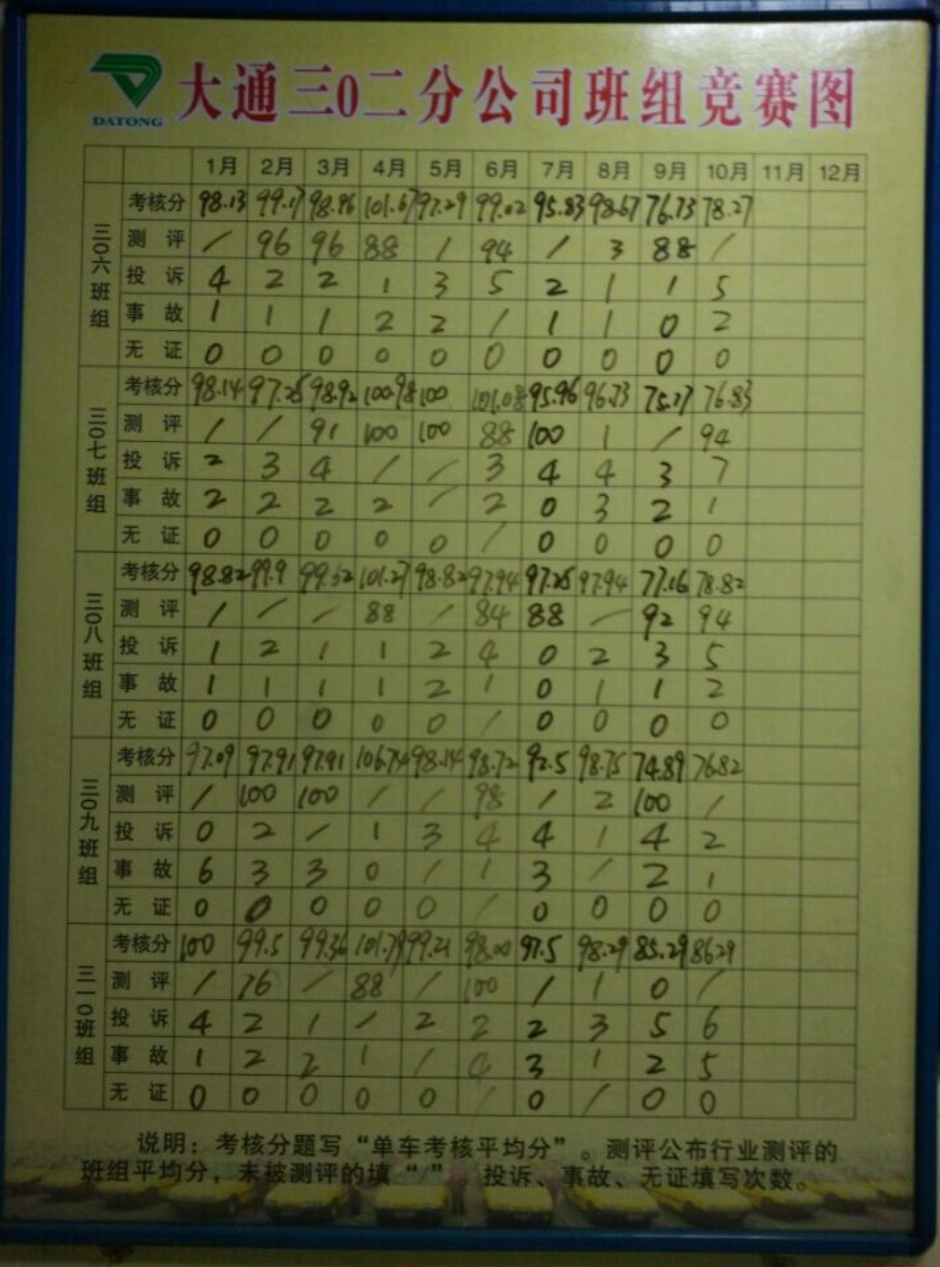 DATONG
大通三0二分公司班组竞赛图
1月 2月 3月 4月 5月 6月 7月 8月 9月 10月 11月 12月
三0六班组
考核分 98.13 99.17 98.96 101.67 97.29 99.02 95.83 98.67 76.73 78.27
测评 / 96 96 88 / 94 / 3 88 /
投诉 4 2 2 1 3 5 2 1 1 5
事故 1 1 1 2 2 / 1 1 0 2
无证 0 0 0 0 0 0 0 0 0 0
三0七班组
考核分 98.14 97.25 98.92 100.98 100 101.08 95.96 96.73 75.77 76.83
测评 / / 91 100 100 88 100 1 / 94
投诉 2 3 4 / / 3 4 4 3 7
事故 2 2 2 2 / 2 0 3 2 1
无证 0 0 0 0 0 / 0 0 0 0
三0八班组
考核分 98.82 99.9 99.52 101.27 98.82 97.94 97.25 97.94 77.16 78.82
测评 / / / 88 / 84 88 / 92 94
投诉 1 2 1 1 2 4 0 2 3 5
事故 1 1 1 1 2 1 0 1 1 2
无证 0 0 0 0 0 / 0 0 0 0
三0九班组
考核分 97.09 97.91 97.91 106.74 98.14 98.72 92.5 98.75 74.89 76.82
测评 / 100 100 / / 98 / 2 100 /
投诉 0 2 / 1 3 4 4 1 4 2
事故 6 3 3 0 / 1 3 / 2 1
无证 0 0 0 0 0 / 0 0 0 0
三一0班组
考核分 100 99.5 99.36 101.79 99.21 98.00 97.5 98.29 85.29 86.29
测评 / 76 / 88 / 100 / 1 0 /
投诉 4 2 1 / 2 2 2 3 5 6
事故 1 2 2 1 / 3 1 2 5
无证 0 0 0 0 0 / 0 / 0 0
说明：考核分题写“单车考核平均分”。测评公布行业测评的
班组平均分，未被测评的填“/”。投诉、事故、无证填写次数。